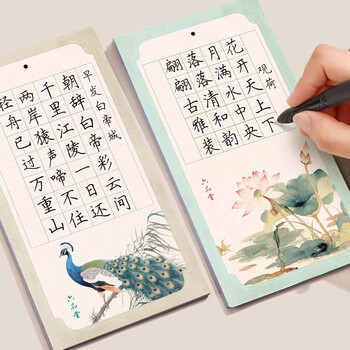 早发白帝城
朝辞白帝彩云间
千里江陵一日还
两岸猿声啼不住
轻舟已过万重山
六品堂
观荷
花开天上下
月满水中央
落落清和韵
翩翩古雅装
六品堂